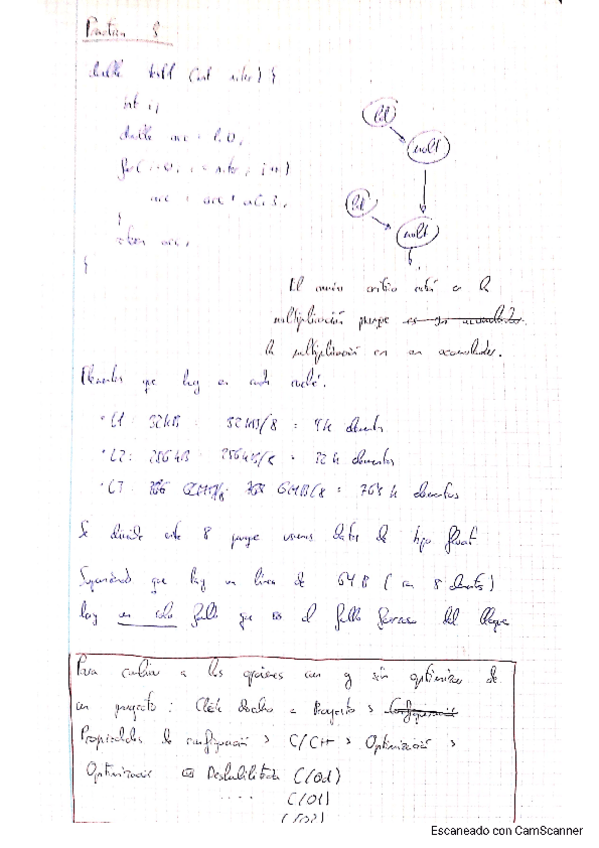 Practica 8
double test (int iter) {
int i;
double acc = 1.0;
for (i=0, i < iter, i++)
acc = acc *
}
return acc;
}
ld
mult
ld
mult
El camino critico está en la
multiplicación porque es un acumulador
la multiplicación en un acumulador.
Elementos que hay en cada caché.
· L1: 32KB 32KB/8 = 4k elementos
· L2: 256KB 256KB/8 = 32k elementos
· L3 6MB/8 = 768 k elementos
Se divide entre 8 porque usamos datos de tipo float
Suponiendo que hay un línea de 64B (son 8 elementos)
hay un solo fallo que es el fallo del bloque
Para cambiar a las opciones con y sin optimizar de
un proyecto: Click derecho en Proyecto > Configuración
Propiedades de configuración > C/C++ > Optimización >
Optimización Deshabilitada C(/Od)
C(/O1)
(/O2)
Escaneado con CamScanner